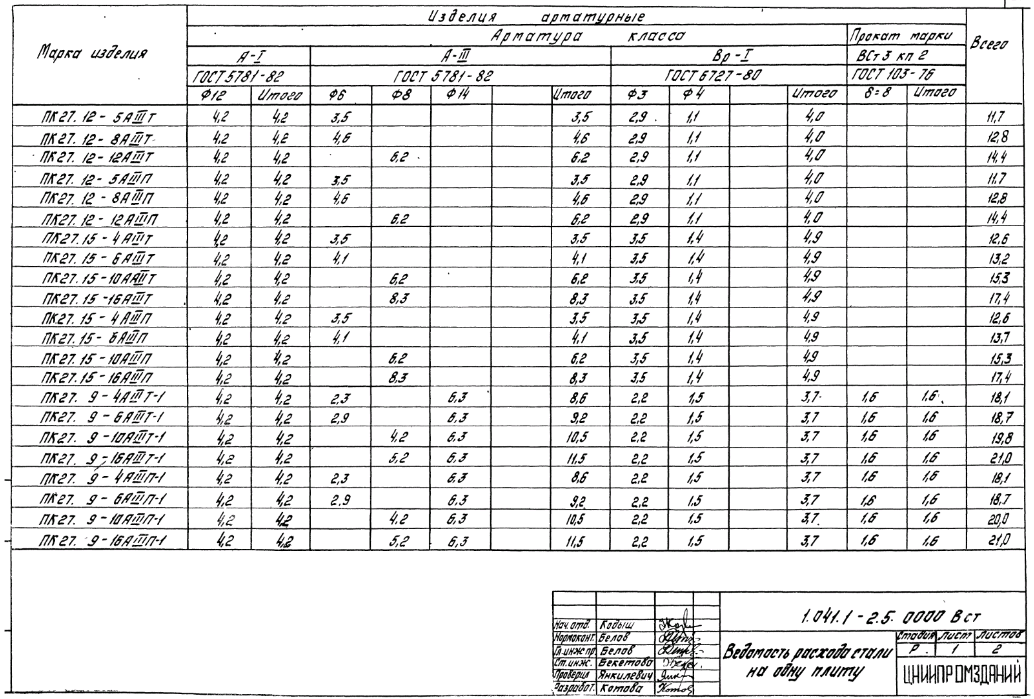 Изделия арматурные
Марка изделия Арматура класса Прокат марки Всего
А-I А-III Вр-I ВСт3 кп 2
ГОСТ 5781-82 ГОСТ 5781-82 ГОСТ 6727-80 ГОСТ 103-76
Ф12 Итого Ф6 Ф8 Ф14 Итого Ф3 Ф4 Итого б=8 Итого
ПК27.12-5АIIIТ 4,2 4,2 3,5 3,5 2,9 1,1 4,0 11,7
ПК27.12-8АIIIТ 4,2 4,2 4,6 4,6 2,9 1,1 4,0 12,8
ПК27.12-12АIIIТ 4,2 4,2 6,2 6,2 2,9 1,1 4,0 14,4
ПК27.12-5АIIIП 4,2 4,2 3,5 3,5 2,9 1,1 4,0 11,7
ПК27.12-8АIIIП 4,2 4,2 4,6 4,6 2,9 1,1 4,0 12,8
ПК27.12-12АIIIП 4,2 4,2 6,2 6,2 2,9 1,1 4,0 14,4
ПК27.15-4АIIIТ 4,2 4,2 3,5 3,5 3,5 1,4 4,9 12,6
ПК27.15-6АIIIТ 4,2 4,2 4,1 4,1 3,5 1,4 4,9 13,2
ПК27.15-10АIIIТ 4,2 4,2 6,2 6,2 3,5 1,4 4,9 15,3
ПК27.15-16АIIIТ 4,2 4,2 8,3 8,3 3,5 1,4 4,9 17,4
ПК27.15-4АIIIП 4,2 4,2 3,5 3,5 3,5 1,4 4,9 12,6
ПК27.15-6АIIIП 4,2 4,2 4,1 4,1 3,5 1,4 4,9 13,7
ПК27.15-10АIIIП 4,2 4,2 6,2 6,2 3,5 1,4 4,9 15,3
ПК27.15-16АIIIП 4,2 4,2 8,3 8,3 3,5 1,4 4,9 17,4
ПК27.9-4АIIIТ-1 4,2 4,2 2,3 6,3 8,6 2,2 1,5 3,7 1,6 1,6 18,1
ПК27.9-6АIIIТ-1 4,2 4,2 2,9 6,3 9,2 2,2 1,5 3,7 1,6 1,6 18,7
ПК27.9-10АIIIТ-1 4,2 4,2 4,2 6,3 10,5 2,2 1,5 3,7 1,6 1,6 19,8
ПК27.9-16АIIIТ-1 4,2 4,2 5,2 6,3 11,5 2,2 1,5 3,7 1,6 1,6 21,0
ПК27.9-4АIIIП-1 4,2 4,2 2,3 6,3 8,6 2,2 1,5 3,7 1,6 1,6 18,1
ПК27.9-6АIIIП-1 4,2 4,2 2,9 6,3 9,2 2,2 1,5 3,7 1,6 1,6 18,7
ПК27.9-10АIIIП-1 4,2 4,2 4,2 6,3 10,5 2,2 1,5 3,7 1,6 1,6 20,0
ПК27.9-16АIIIП-1 4,2 4,2 5,2 6,3 11,5 2,2 1,5 3,7 1,6 1,6 21,0
1.041.1-2.5.0000 Вст
Нач.отд. Кодыш
Нормоконт. Белов
Гл.инж.пр. Белов
Ст.инж. Бекетова
Проверил Янкилевич
Разработ. Котова
Ведомость расхода стали
на одну плиту
Стадия Лист Листов
Р. 1 2
ЦНИИПРОМЗДАНИЙ